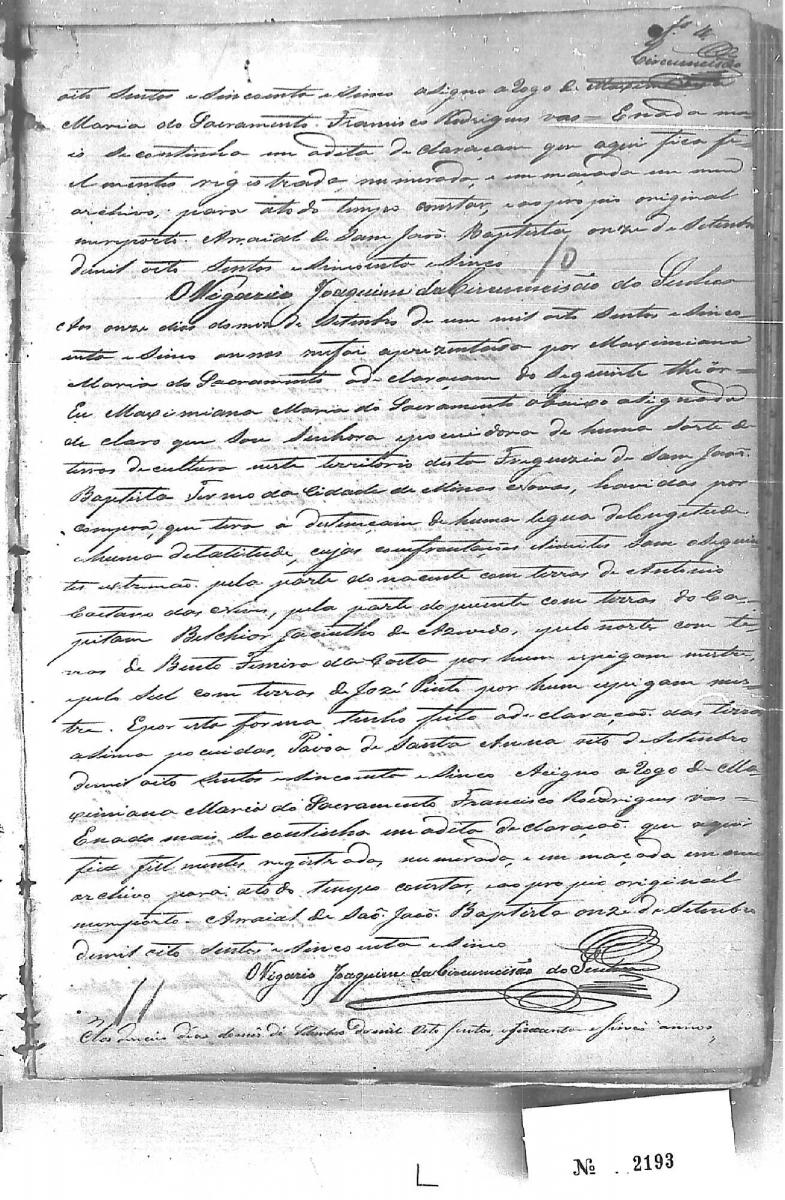 fs 4
Circumcisão
oito sentos e sincoenta e sinco asigno a rogo de
Maria do Sacramento Francisco Rodrigues vas = E nada ma
is se continha em a dita declaraçam que aqui fica fi
elmentes registrada, numerada, e emmaçada em meu
archivo, para a todo tempo constar, e ao propio original
me reporto. Arraial de Sam João Baptista onze de Setembro
de mil oito sentos e sincoenta e sinco
10
O Vigario Joaquim da Circumcisão do Senhor
Aos onze dias do mez de Setembro de um mil oito sentos e sinco
enta e sinco annos me foi aprezentada por Maximiana
Maria do Sacramento a declaracam do seguinte thiôr =
Eu Maximiana Maria do Sacramento abaixo asignada
de claro que sou senhora e pocuidora de huma sorte de
terras de cultura neste territorio desta Freguezia de Sam João
Baptista Termo da Cidade de Minas Novas, havidas por
compra, que tera a destençam de huma legua de longetude
e huma de latitude, cujas comfrontacões e limites sam os seguin
tes estremão pela parte do nacente com terras de Antonio
Caetano das Neves, pela parte do poente com terras do Ca-
pitam Belchior Jacintho de Azevedo, e pelo norte com te-
rras de Bento Ferreira da Costa por hum espigam mestre,
e pelo sul com terras de José Pinto por hum espigam mes-
tre. E por esta forma tenho feito a declaração das terras
asima pocuidas. Pavoa de Santa Anna oito de Setembro
de mil oito sentos e sincoenta e sinco Asigno a rogo de Ma-
ximiana Maria do Sacramento Francisco Rodrigues vas =
E nada mais se continha em a dita declaração que aqui
fica fielmentes registrada, numerada, e emmaçada em meu
archivo para a todo tempo constar, e ao propio original
me reporto. Arraial de São João Baptista onze de Setembro
de mil oito sentos e sincoenta e sinco
O Vigario Joaquim da Circumcisão do Senhor
11
Aos dias do mes de Setembro de mil oito sentos e sincoenta e sinco annos,
Nº 2193
L